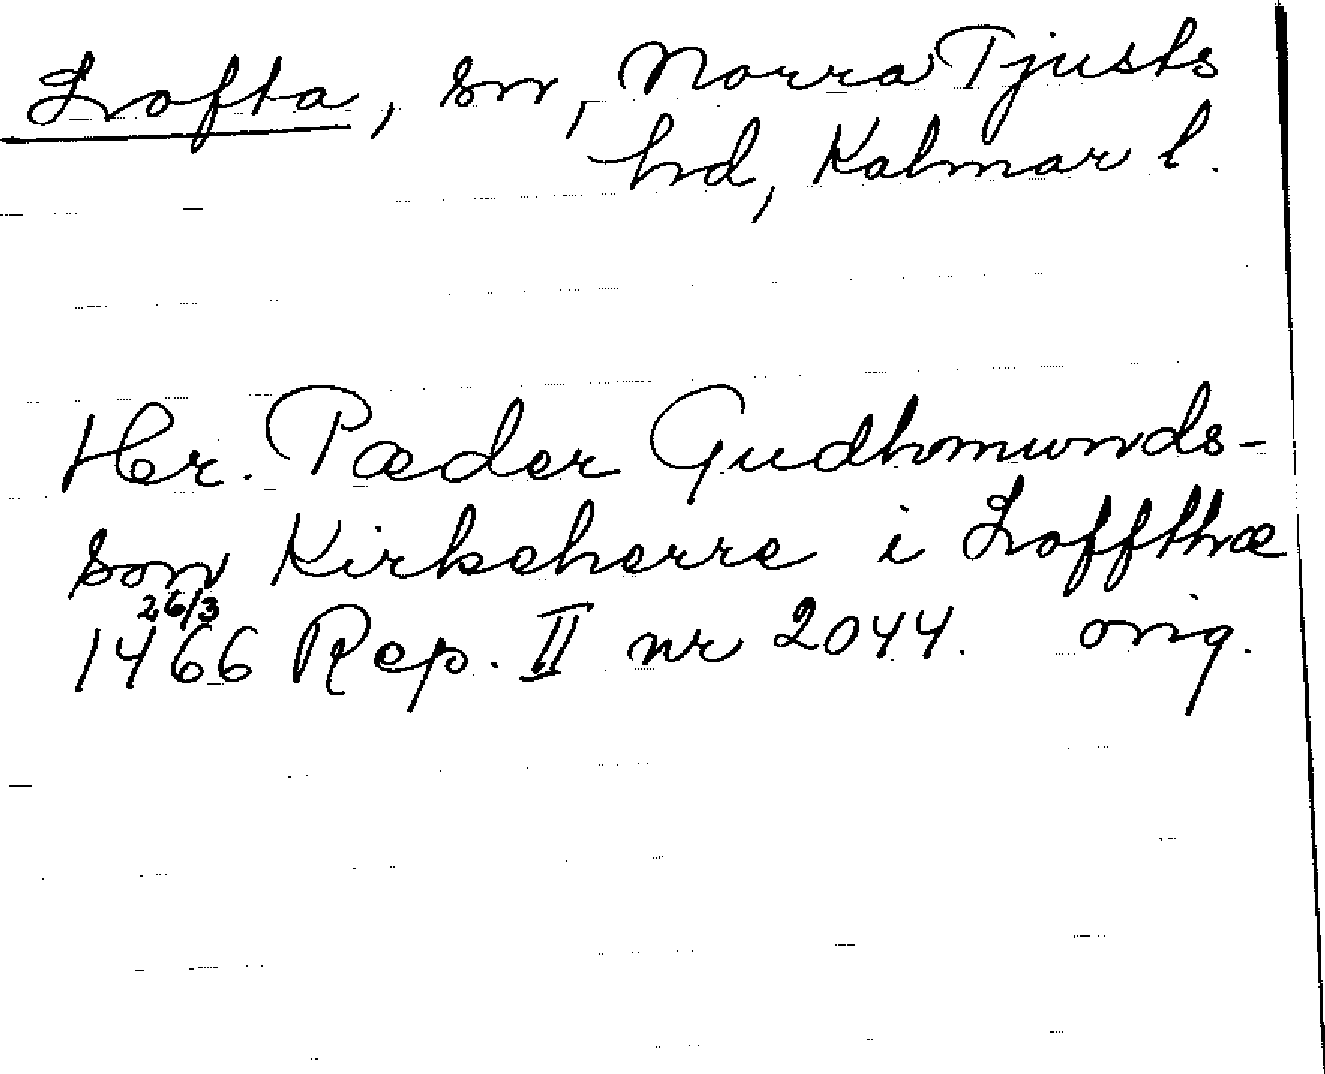 Lofta, sn, Norra Tjusts
hd, Kalmar l.
Her. Pæder Gudhmunds-
son Kirkeherre i Loffthæ
26/3
1466 Rep. II nr 2044. orig.